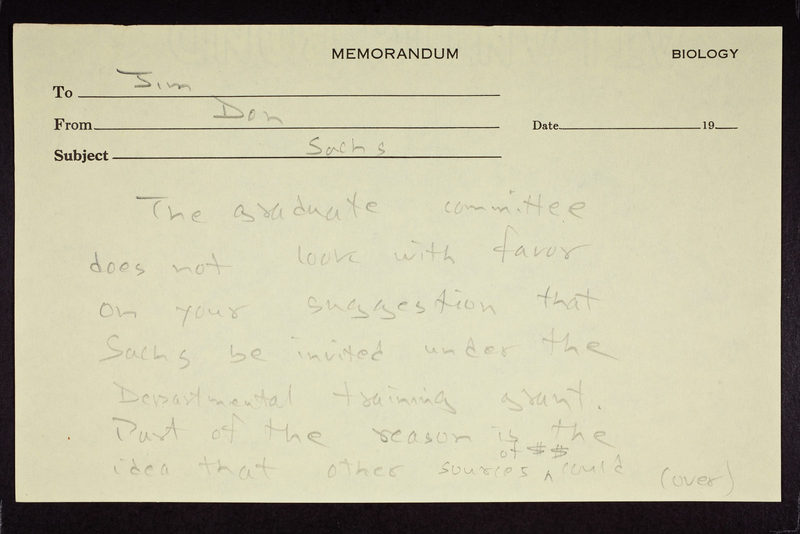 MEMORANDUM BIOLOGY
To Jim
From Don Date 19
Subject Sachs
The graduate committee
does not look with favor
on your suggestion that
Sachs be invited under the
Departmental training grant.
Part of the reason is the
of $$
idea that other sources ^ could (over)